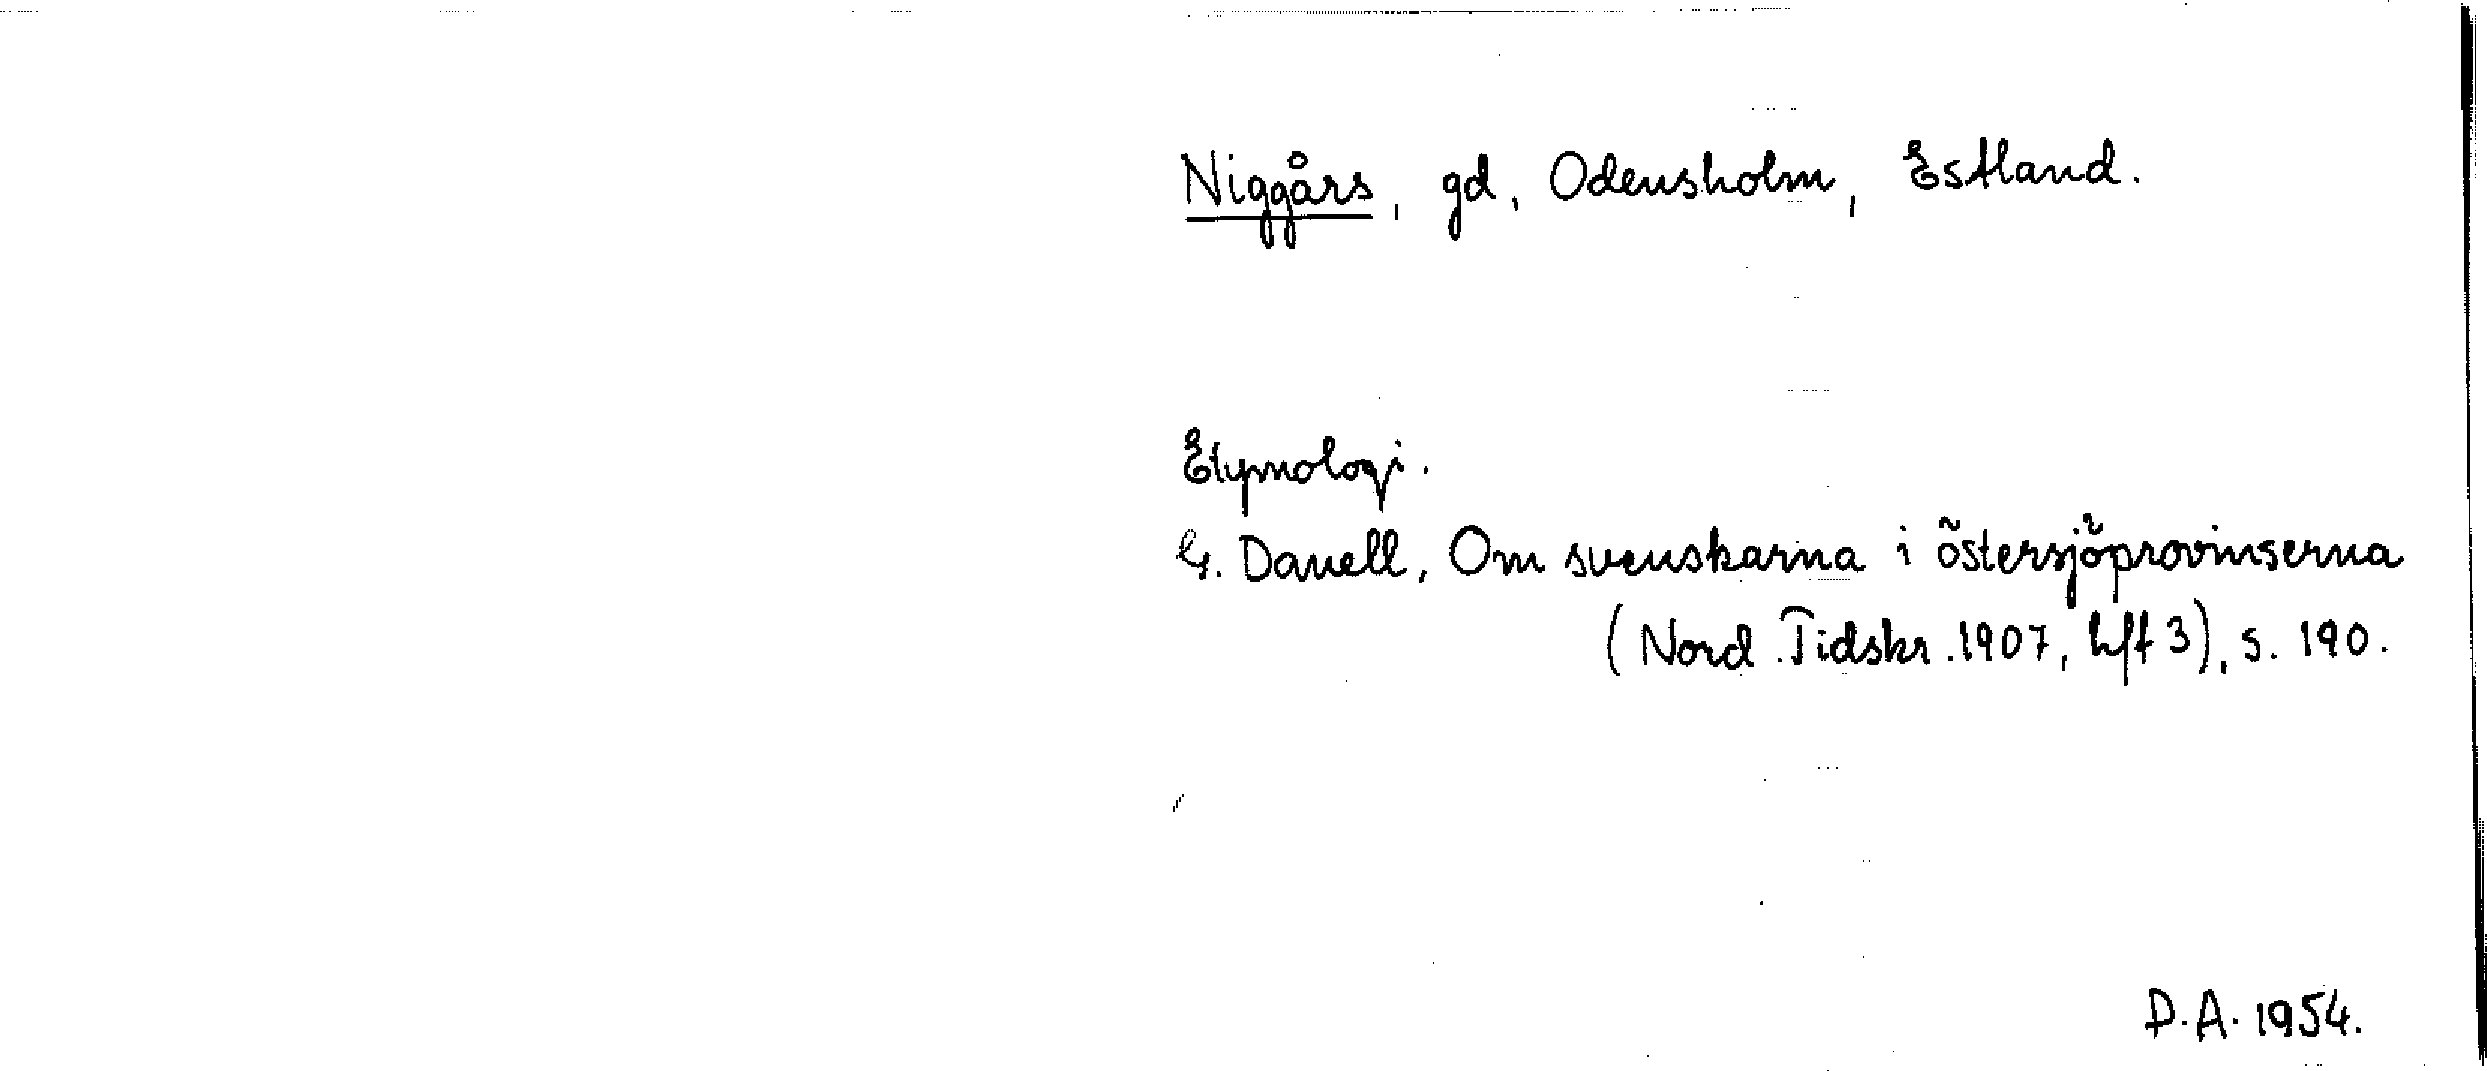 Niggårs, gd, Odensholm, Estland.
Etymologi.
G. Danell, Om svenskarna i östersjöprovinserna
(Nord. Tidskr. 1907, hft 3), s. 190.
D.A. 1954.